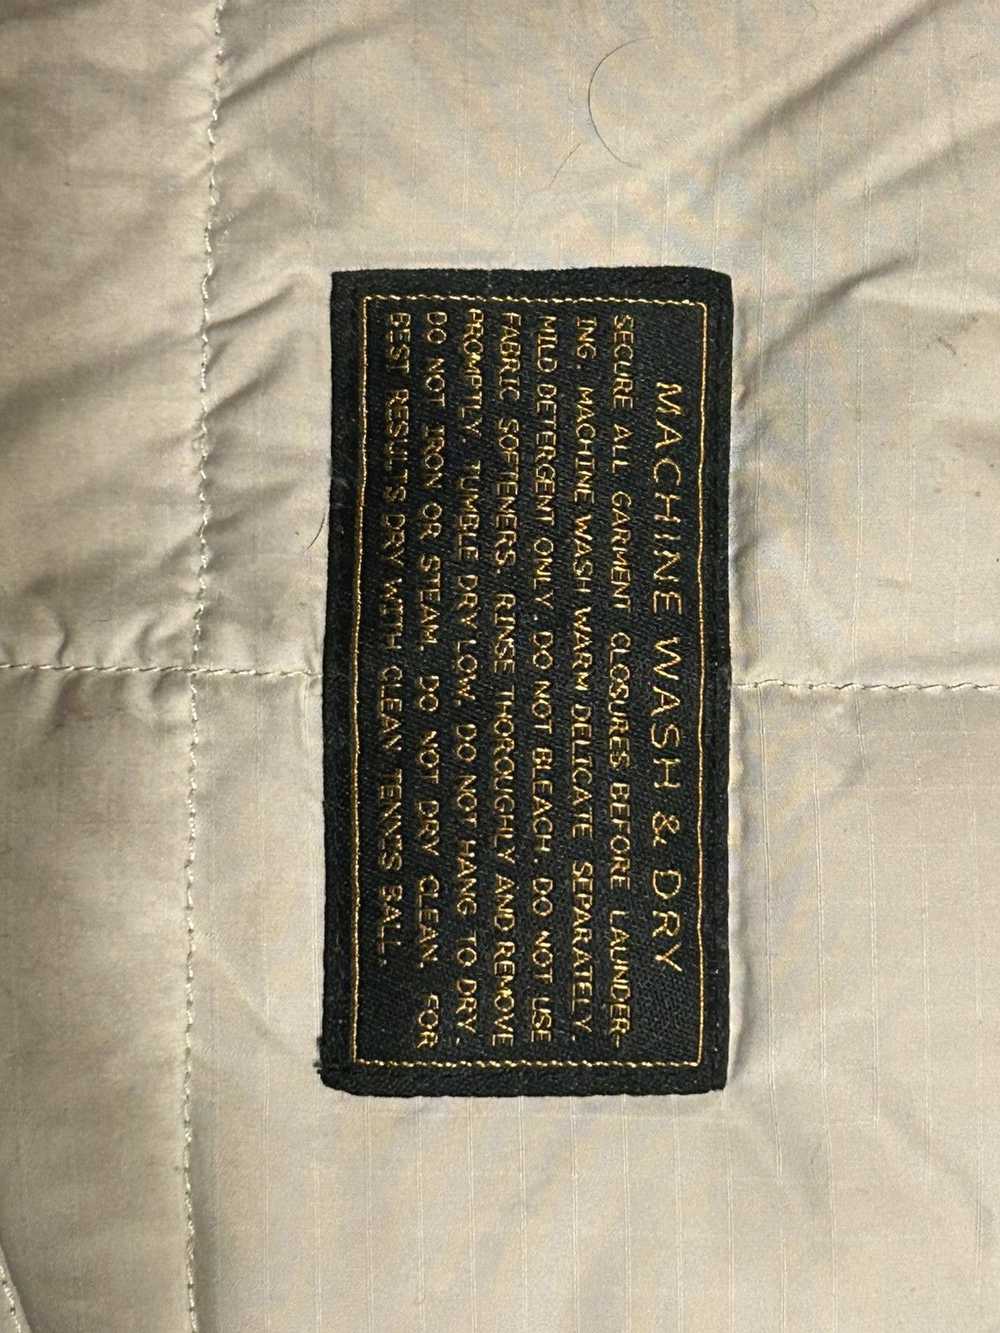 MACHINE WASH & DRY
SECURE ALL GARMENT CLOSURES BEFORE LAUNDER-
ING. MACHINE WASH WARM DELICATE SEPARATELY.
MILD DETERGENT ONLY. DO NOT BLEACH. DO NOT USE
FABRIC SOFTENERS. RINSE THOROUGHLY AND REMOVE
PROMPTLY. TUMBLE DRY LOW. DO NOT HANG TO DRY.
DO NOT IRON OR STEAM. DO NOT DRY CLEAN. FOR
BEST RESULTS DRY WITH CLEAN TENNIS BALL.